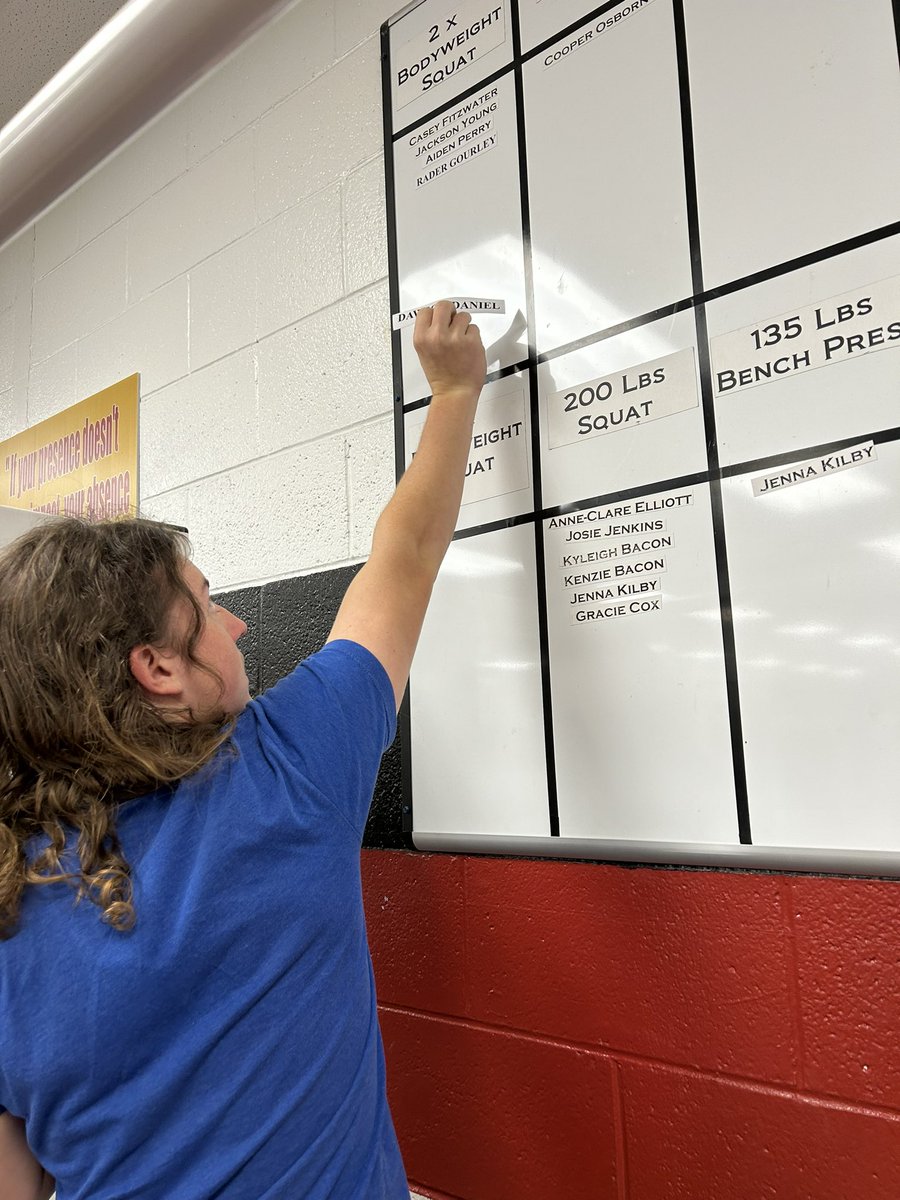 2 x
Bodyweight
Squat
Casey Fitzwater
Jackson Young
Aiden Perry
RADER GOURLEY
DANIEL
Cooper Osborn
200 Lbs
Squat
135 Lbs
Bench
Jenna Kilby
Anne-Clare Elliott
Josie Jenkins
Kyleigh Bacon
Kenzie Bacon
Jenna Kilby
Gracie Cox
"If your presence doesn't
your absence